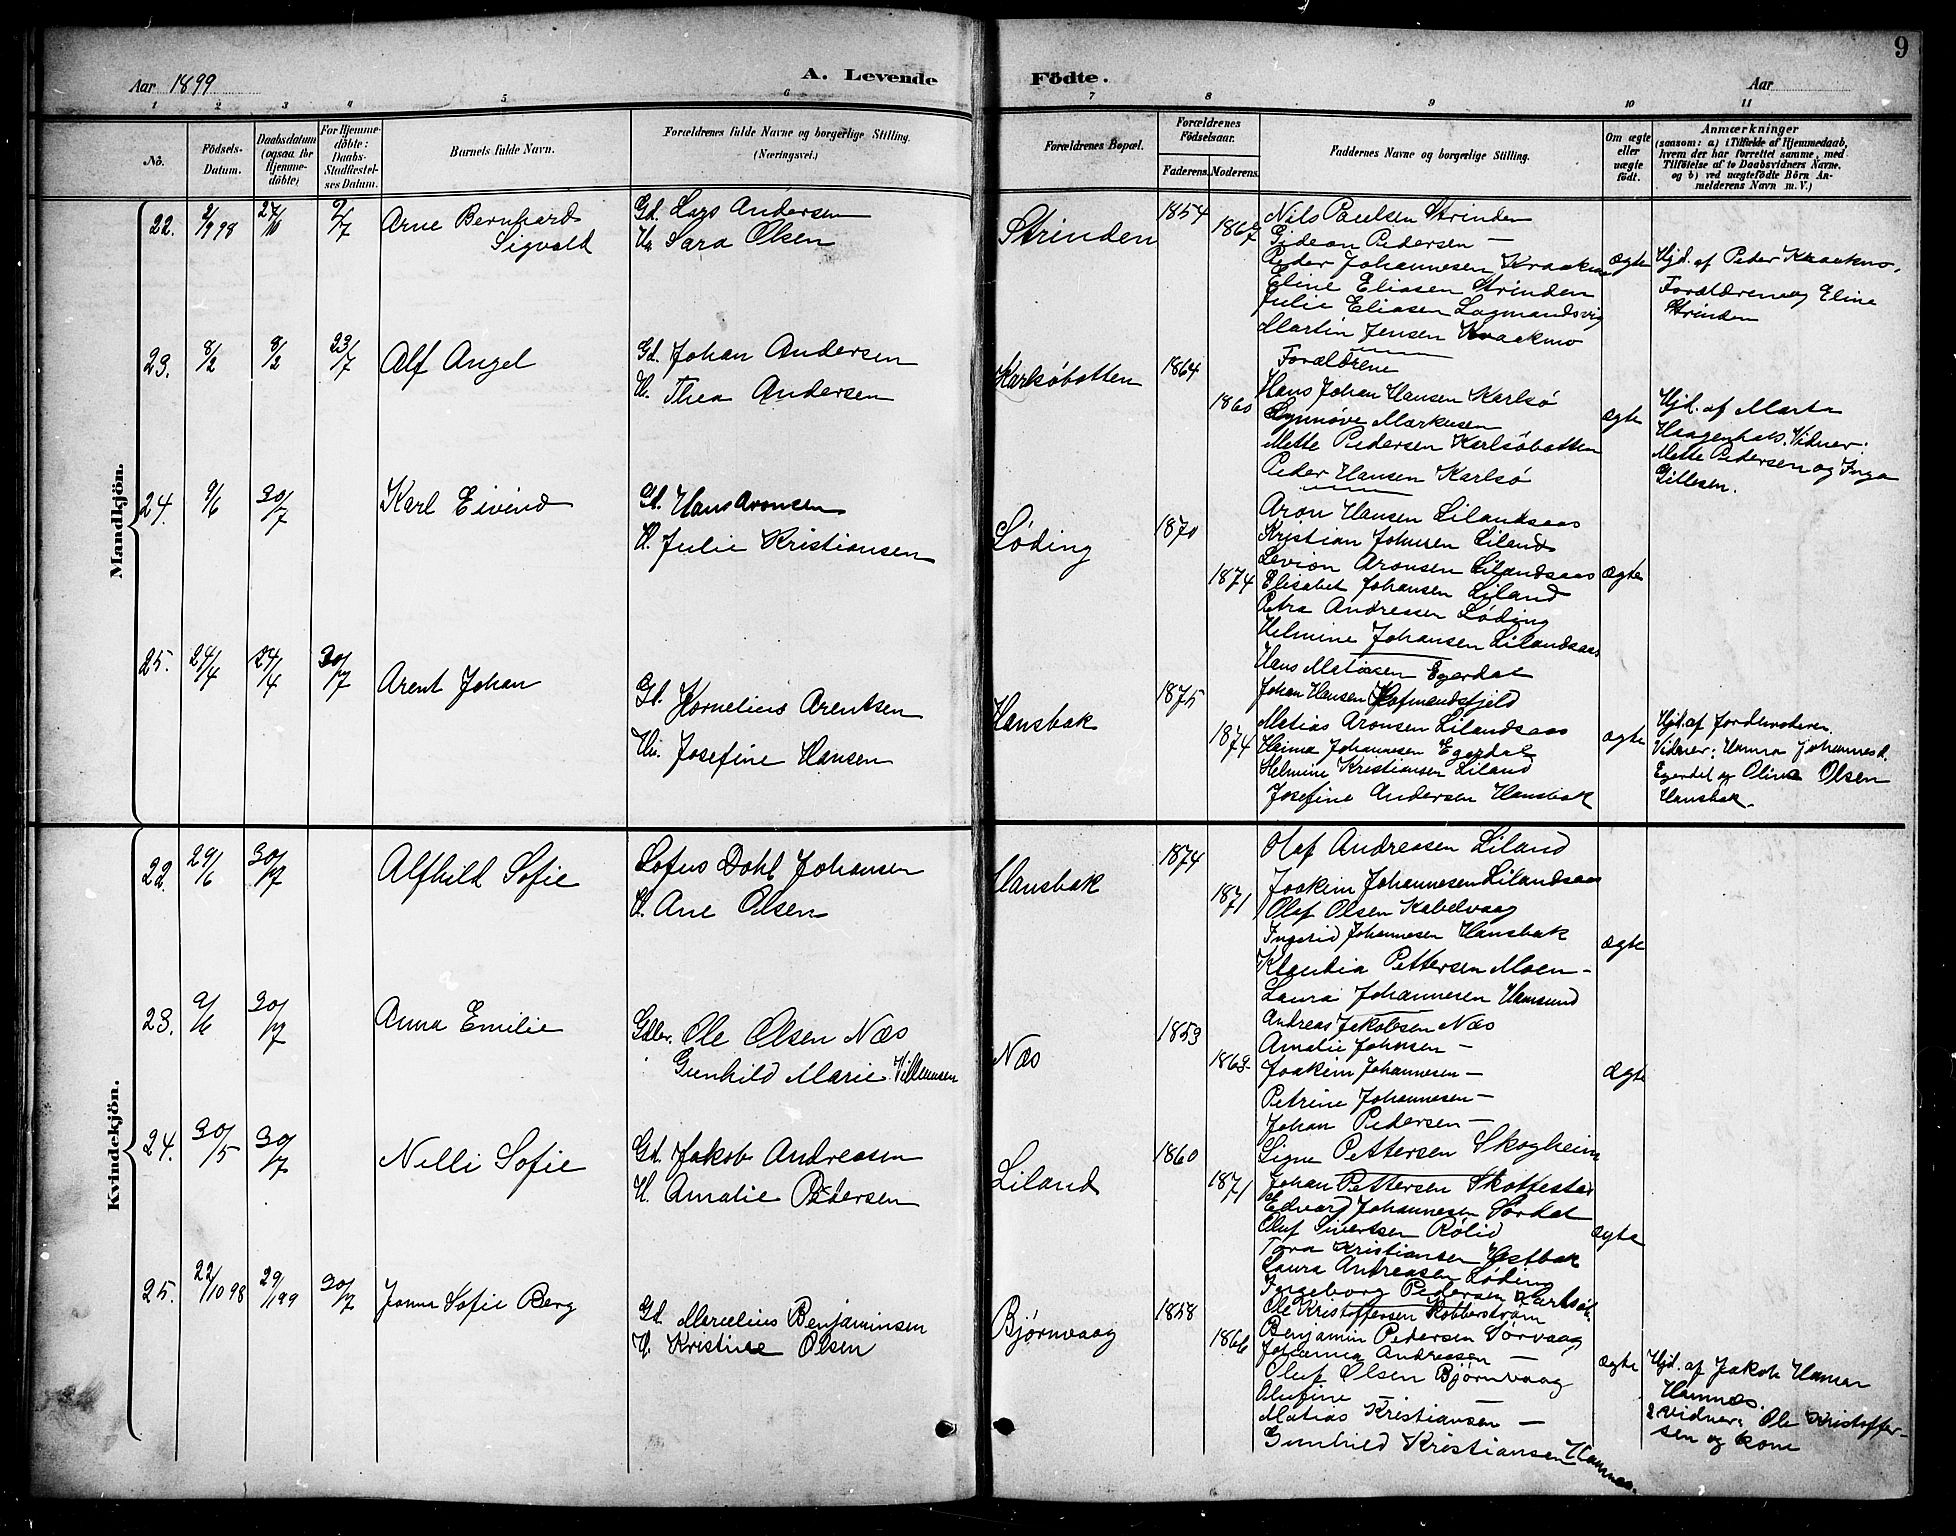 9
Aar 1899
A. Levende
Födte.
Aar
1 2 3 4 5 6 7 8 9 10 11
No.
Födsels-
Datum.
Daabsdatum
(ogsaa for
Hjemme-
döbte)
For Hjemme-
döbte:
Daabs-
Stadfæstel-
ses Datum.
Barnets fulde Navn.
Forældrenes fulde Navne og borgerlige Stilling.
(Næringsvei.)
Forældrenes Bopæl.
Forældrenes
Födselsaar.
Faderens. Moderens.
Faddernes Navne og borgerlige Stilling.
Om ægte
eller
uægte
født.
Anmærkninger
(saasom: a) i Tilfælde af Hjemmedaab,
hvem der har forrettet samme, med
Tilföielse af to Daabsvidners Navne,
og b) ved uægtefödte Börn An-
melderens Navn m. V.)
Mandkjön.
22. 2/9 98 27/10 2/7 Arne Bernhard
Sigvald
Gd. Lars Andersen
Hu Sara Olsen
Strinden 1854 1867
Nils Paulsen Strinden
Gideon Pedersen —
Peder Johannesen Kraakmo
Eline Eliasen Strinden
Julie Eliasen Lagmandsvig
Martin Jensen Kraakmo
ægte
Hjd. af Peder Kraakmo,
Forældrene og Eline
Strinden
23. 8/2 8/2 23/7 Alf Angel
Gd. Johan Andersen
H. Thea Andersen
Karlsöbotten 1864 1860
Forældrene
Hans Johan Hansen Karlsö
Synnöve Markusen
Mette Pedersen Karlsöbotten
Peder Hansen Karlsö
ægte
Hjd. af Marta
Haagenhals. Vidner:
Mette Pedersen og Inga
Gillesen.
24. 9/6 30/7 Karl Eivind
Gd. Hans Aronsen
H. Julie Kristiansen
Løding 1870 1874
Aron Hansen Lilandsaas
Kristian Johnsen Liland
Levion Aronsen Lilandsaas
Elisabet Johansen Liland
Petra Andreasen Løding
Helmine Johansen Lilandsaas
ægte
25. 24/4 24/4 30/7 Arent Johan
Gd. Kornelius Arentsen
Hu. Josefine Hansen
Hansbak 1875 1874
Hans Matisen Egerdal
Johan Hansen Hafmandsfjeld
Matias Aronsen Lilandsaas
Hanna Johannesen Egerdal
Helmine Kristiansen Liland
Josefine Andersen Hansbak
ægte
Hjd. af Jordemoderen.
Vidner: Hanna Johannesd.
Egerdal og Olina Olsen
Hansbak.
Kvindekjön.
22. 29/6 30/7 Alfhild Sofie
Sofus Dahl Johansen
H. Ane Olsen
Hansbak 1874 1871
Olaf Andreasen Liland
Joakim Johannesen Lilandsaas
Olaf Olsen Kabelvaag
Ingerid Johannesen Hansbak
Klaudia Pettersen Moen —
Laura Johannesen Hamsund
ægte
23. 9/6 30/7 Anna Emilie
Gdbr. Ole Olsen Næs
Gunhild Marie Villumsen
Næs 1853 1863
Andreas Jakobsen Næs
Amalie Johnsen —
Joakim Johannesen —
Petrine Johannesen —
Johan Pedersen —
Signe Pettersen Skogheim
ægte
24. 30/5 30/7 Nelli Sofie
Gd. Jakob Andreasen
H. Amalie Pedersen
Liland 1860 1871
Johan Pettersen Skottestad
Edvard Johannesen Sørdal
Oluf Sivertsen Rølid
Tora Kristiansen Hestbak
Laura Andreasen Løding
Ingeborg Pedersen Karlsöb.
ægte
25. 22/10 98 29/1 99 30/7 Jonna Sofie Berg
Gd. Marselius Benjaminsen
H. Kristine Olsen
Bjørnvaag 1858 1866
Ole Kristoffersen Robberstrøm
Benjamin Pedersen Sørvaag
Johanna Andreasen —
Oluf Olsen Bjørnvaag
Olufine —
Matias Kristiansen —
Gunhild Kristiansen Hamnes.
ægte
Hjd. af Jakob Hansen
Hamnæs.
2 Vidner: Ole Kristoffer-
sen og kone